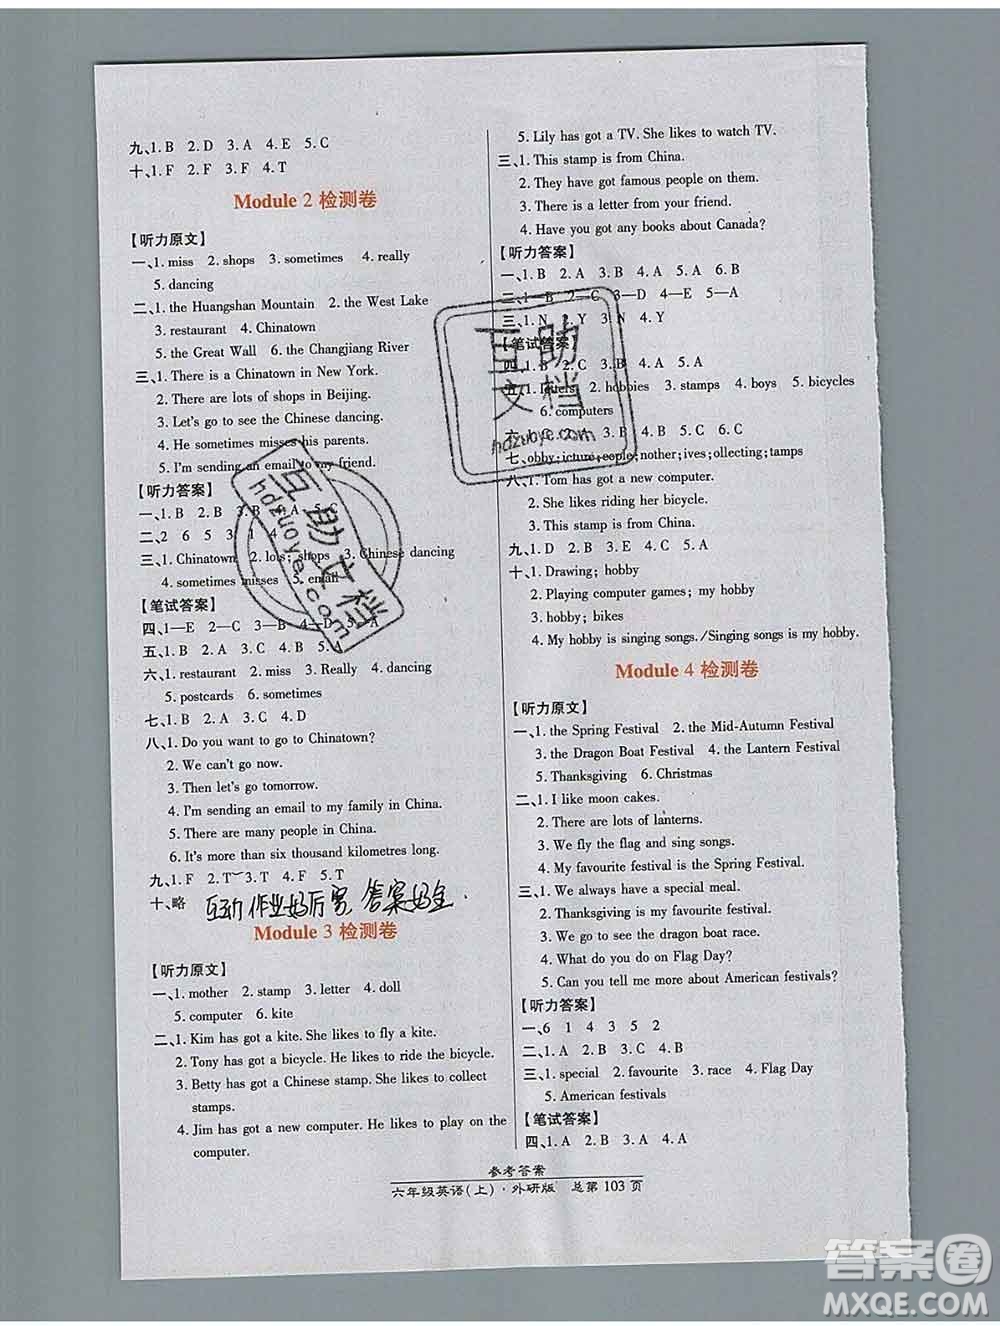 九、1. B  2. D  3. A  4. E  5. C
十、1. F  2. F  3. F  4. T
Module 2 检测卷
【听力原文】
一、1. miss  2. shops  3. sometimes  4. really
5. dancing
二、1. the Huangshan Mountain  2. the West Lake
3. restaurant  4. Chinatown
5. the Great Wall  6. the Changjiang River
三、1. There is a Chinatown in New York.
2. There are lots of shops in Beijing.
3. Let's go to see the Chinese dancing.
4. He sometimes misses his parents.
5. I'm sending an email to my friend.
【听力答案】
一、1. B  2. B  3. B  4. A  5. C
二、2  6  5  3  1  4
三、1. Chinatown  2. lots; shops  3. Chinese dancing
4. sometimes misses  5. email
【笔试答案】
四、1—E  2—C  3—B  4—D  5—A
五、1. B  2. B  3. C
六、1. restaurant  2. miss  3. Really  4. dancing
5. postcards  6. sometimes
七、1. B  2. A  3. C  4. D
八、1. Do you want to go to Chinatown?
2. We can't go now.
3. Then let's go tomorrow.
4. I'm sending an email to my family in China.
5. There are many people in China.
6. It's more than six thousand kilometres long.
九、1. F  2. T  3. T  4. F  5. T
十、略
互动作业好厉害 答案好全.
Module 3 检测卷
【听力原文】
一、1. mother  2. stamp  3. letter  4. doll
5. computer  6. kite
二、1. Kim has got a kite. She likes to fly a kite.
2. Tony has got a bicycle. He likes to ride the bicycle.
3. Betty has got a Chinese stamp. She likes to collect
stamps.
4. Jim has got a new computer. He likes to play on the
computer.
5. Lily has got a TV. She likes to watch TV.
三、1. This stamp is from China.
2. They have got famous people on them.
3. There is a letter from your friend.
4. Have you got any books about Canada?
【听力答案】
一、1. B  2. A  3. B  4. A  5. A  6. B
二、1—B  2—C  3—D  4—E  5—A
三、1. N  2. Y  3. N  4. Y
【笔试答案】
四、1. B  2. C  3. B  4. A  5. A
五、2. hobbies  3. stamps  4. boys  5. bicycles
6. computers
六、3. B  4. B  5. A
七、obby; icture; eople; nother; ives; ollecting; tamps
八、1. Tom has got a new computer.
2. She likes riding her bicycle.
3. This stamp is from China.
九、1. D  2. B  3. A  4. C
十、1. Drawing; hobby
2. Playing computer games; my hobby
3. hobby; bikes
4. My hobby is singing songs./Singing songs is my hobby.
Module 4 检测卷
【听力原文】
一、1. the Spring Festival  2. the Mid-Autumn Festival
3. the Dragon Boat Festival  4. the Lantern Festival
5. Thanksgiving  6. Christmas
二、1. I like moon cakes.
2. There are lots of lanterns.
3. We fly the flag and sing songs.
4. My favourite festival is the Spring Festival.
三、1. We always have a special meal.
2. Thanksgiving is my favourite festival.
3. We go to see the dragon boat race.
4. What do you do on Flag Day?
5. Can you tell me more about American festivals?
【听力答案】
一、6  1  4  3  5  2
二、1. A  2. B  3. C  4. B
三、1. special  2. favourite  3. race  4. Flag Day
5. American festivals
【笔试答案】
四、1. A  2. B  3. A  4. A
参考答案
六年级英语(上)·外研版  总第 103 页
互助文档
hdzuoye.com
互助文档
hdzuoye.com
答案圈
MXQE.COM